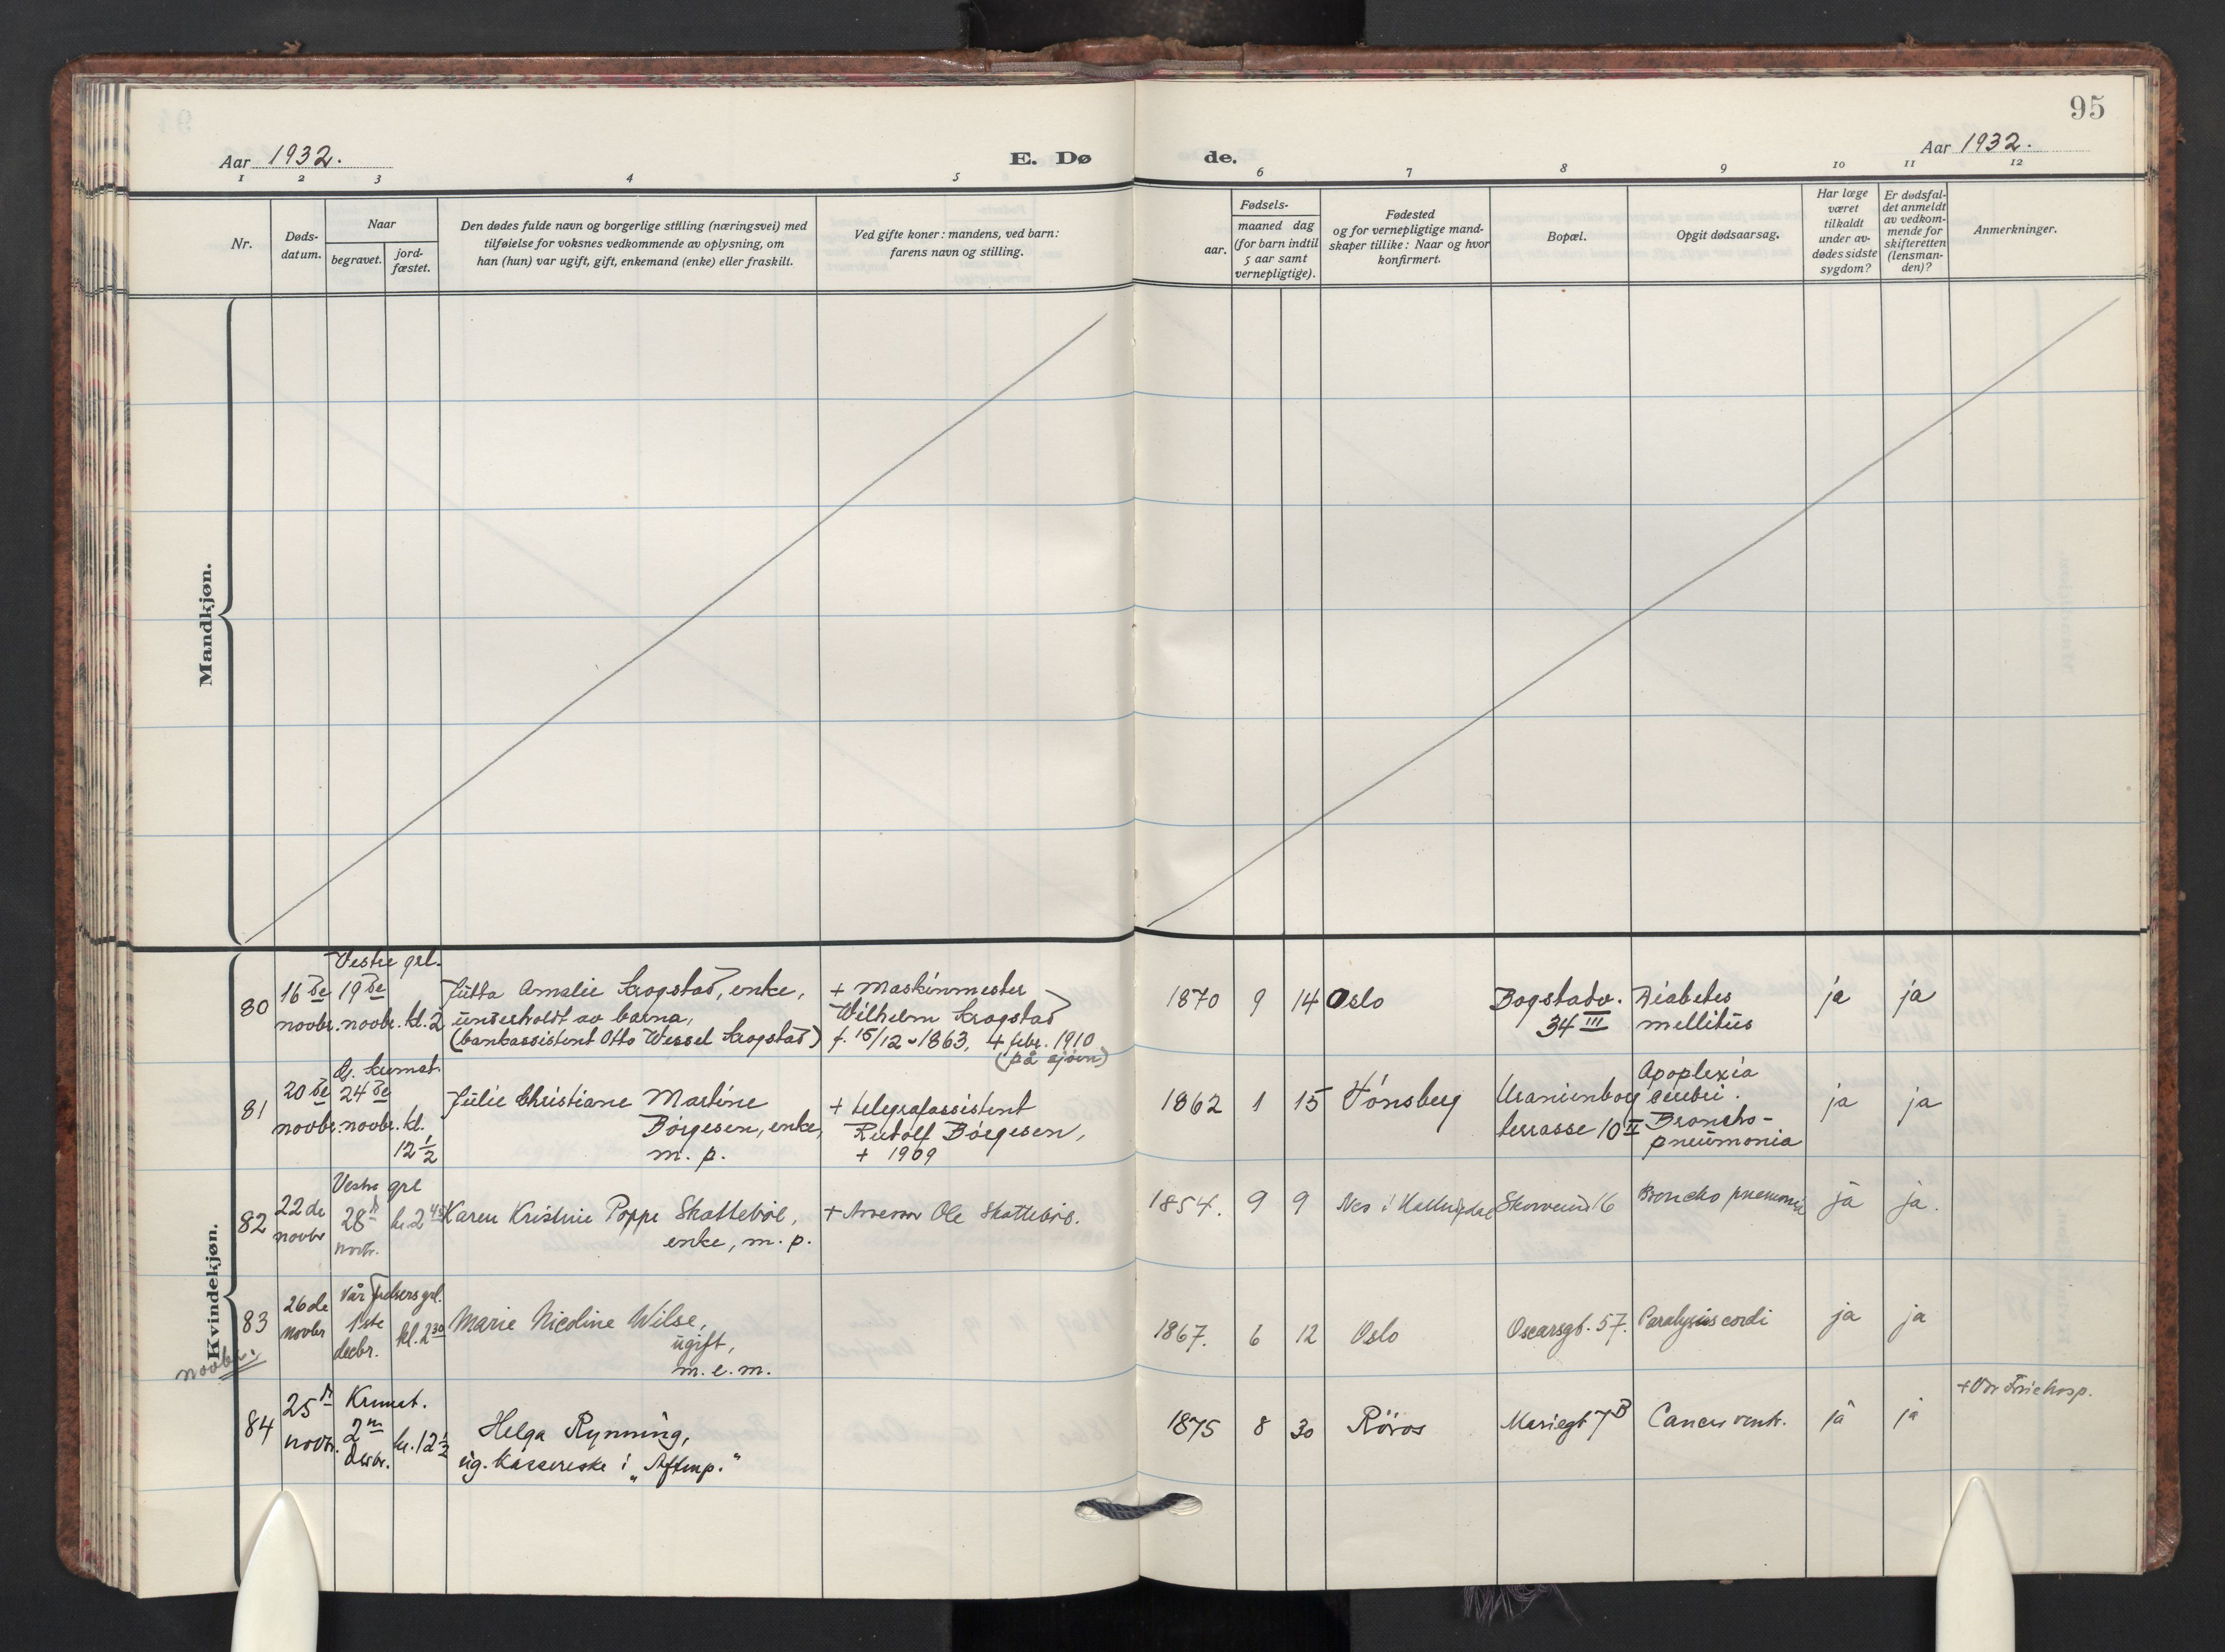 95
Aar 1932.
E. Dø
de.
Aar 1932.
1 2 3 4 5 6 7 8 9 10 11 12
Nr.
Døds-
datum.
Naar
begravet.
jord-
fæstet.
Den dødes fulde navn og borgerlige stilling (næringsvei) med
tilføielse for voksnes vedkommende av oplysning, om
han (hun) var ugift, gift, enkemand (enke) eller fraskilt.
Ved gifte koner: mandens, ved barn:
farens navn og stilling.
aar.
Fødsels-
maaned dag
(for barn indtil
5 aar samt
vernepligtige).
Fødested
og for vernepligtige mand-
skaper tillike: Naar og hvor
konfirmert.
Bopæl.
Opgit dødsaarsag.
Har læge
været
tilkaldt
under av-
dødes sidste
sygdom?
Er dødsfal-
det anmeldt
av vedkom-
mende for
skifteretten
(lensman-
den)?
Anmerkninger.
Mandkjøn.
Kvindekjøn.
80
16de
novbr.
Vestre grl.
19de
novbr. kl. 2
Jutta Amalie Krogstad, enke,
underholdt av barna,
(bankassistent Otto Wessel Krogstad)
+ Maskinmester
Wilhelm Krogstad
f. 15/12 - 1863, + febr. 1910
(på sjøen)
1870 9 14 Oslo
Bogstadv.
34 III
Diabetes
mellitus
ja ja
81
20de
novbr.
G. kremat.
24de
novbr. kl.
12 1/2
Julie Christiane Martine
Börgesen, enke,
m. p.
+ telegrafassistent
Rudolf Börgesen,
+ 1909
1862 1 15 Tönsberg
Uranienborg
terrasse 10 II
Apoplexia
cerebri.
Broncho-
pneumonia
ja ja
82
22de
novbr
Vestre grl
28d
novbr.
kl. 2 45
Karen Kristine Poppe Skatteböl,
enke, m. p.
+ Ole Skatteböl.
1854. 9 9 Nes i Hallingdal
16
Broncho pneumonia
ja ja.
83
26de
novbr
Vår Frelsers grl.
1ste
decbr.
kl. 2 30
Marie Nicoline Wilse,
ugift,
m. e. m.
1867. 6 12 Oslo
Oscarsgt. 57.
Paralysis cordi
ja ja
novbr.
84
25d
novbr.
Kremat.
2n
desbr.
kl. 12 1/2
Helga Rynning,
ug. kassererske i „Aftenp."
1875 8 30 Röros
Mariegt 7B
Cancer ventr.
ja ja